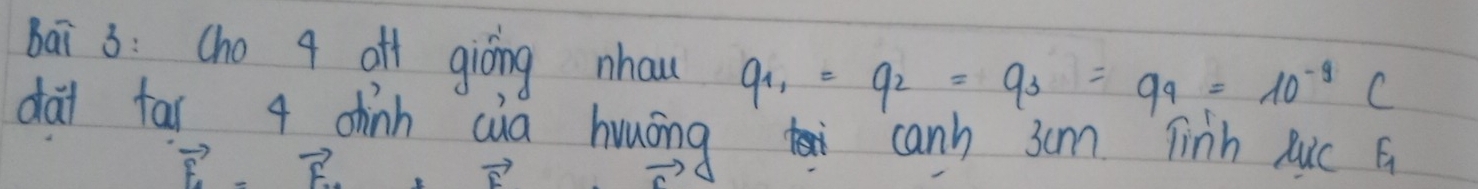 Bài 3: Cho 4 đtđ giống nhau q1, = q2 = q3 = q4 = 10⁻⁹ C
đặt tại 4 đỉnh của hvuông cạnh 3cm Tính lực F1
F1 = F F